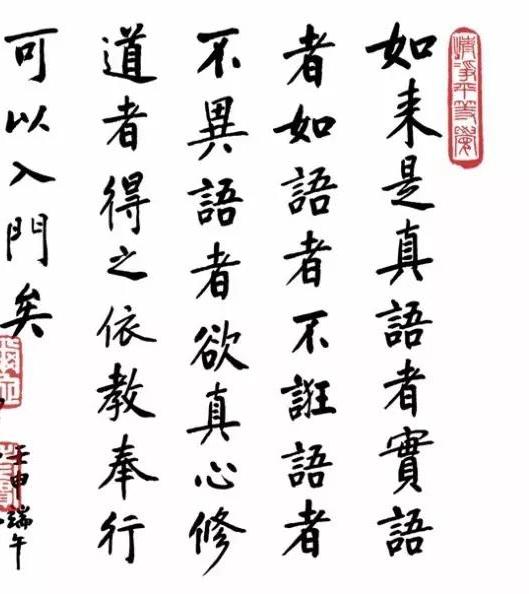 清淨平等覺
如来是真語者實語
者如語者不誑語者
不異語者欲真心修
道者得之依教奉行
可以入門矣
壬申端午